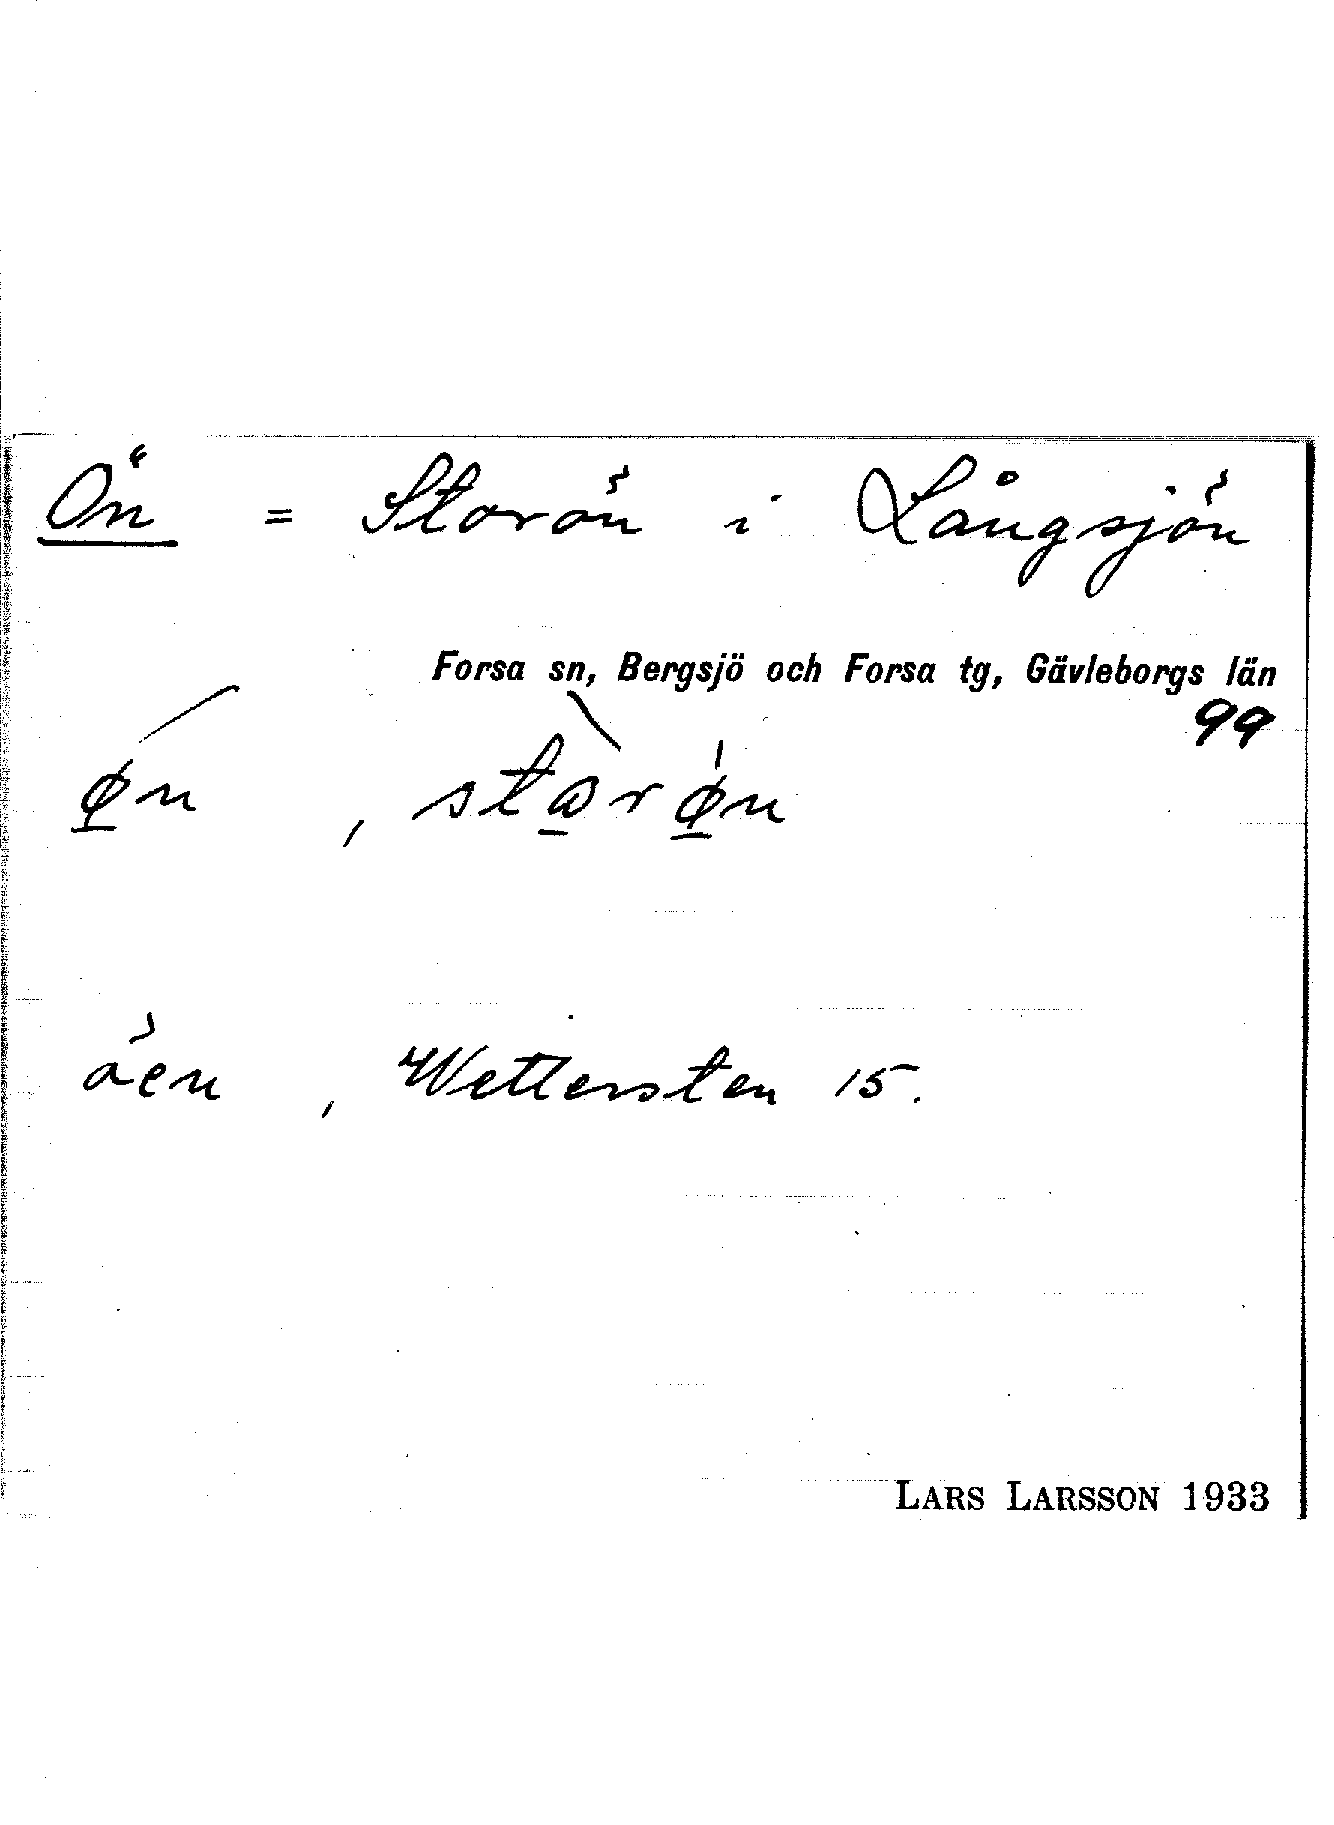 Ön = Storön i Långsjön
Forsa sn, Bergsjö och Forsa tg, Gävleborgs län
99
øn , stωrøn
öen , Wettersten 15.
LARS LARSSON 1933